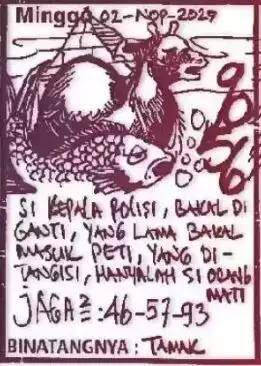 Minggu 02-NOP-2025
90
56
SI KEPALA POLISI, BAKAL DI
GANTI, YANG LAMA BAKAL
MASUK PETI, YANG DI-
TANGISI, HANYALAH SI ORANG
MATI
JAGA2 : 46-57-93
BINATANGNYA : TAMAK